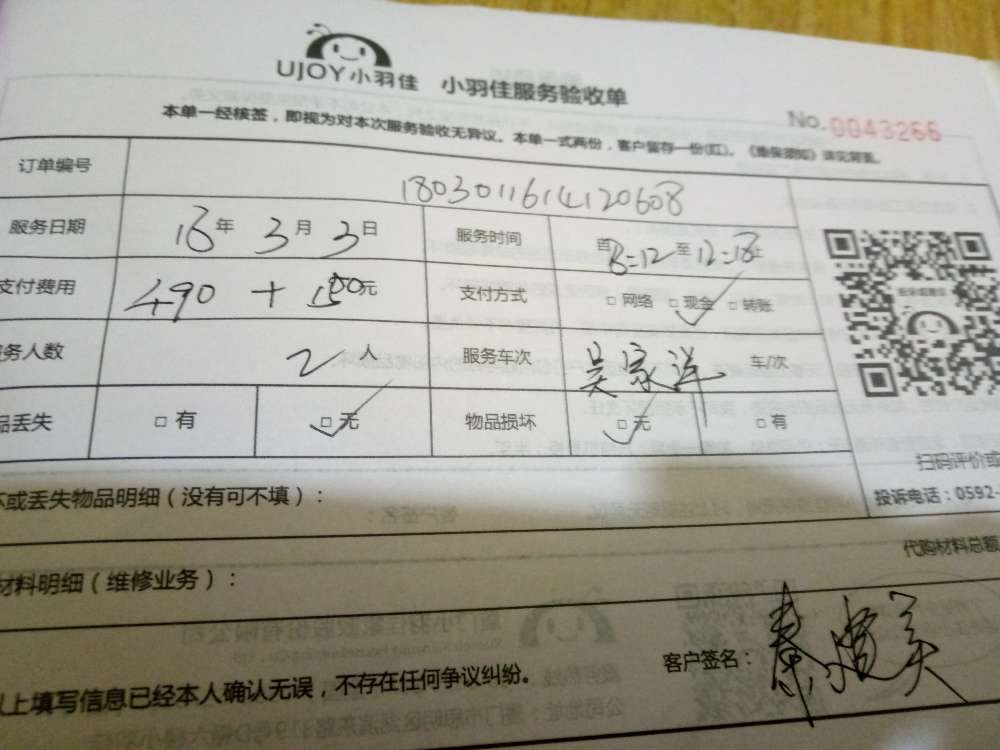 UJOY小羽佳 小羽佳服务验收单
No.0043266
本单一经核签，即视为对本次服务验收无异议。本单一式两份，客户留存一份(红)。《维保须知》详见背面。
订单编号 1803011614120608
服务日期 18年3月3日 服务时间 自8:12至12:18止
支付费用 490 + 150元 支付方式 □网络 □现金 □转账
务人数 2人 服务车次 吴家洋 车/次
品丢失 □有 □无 物品损坏 □无 □有
扫码评价或
坏或丢失物品明细（没有可不填）：
投诉电话：0592-
代购材料总额
材料明细（维修业务）：
客户签名：
以上填写信息已经本人确认无误，不存在任何争议纠纷。